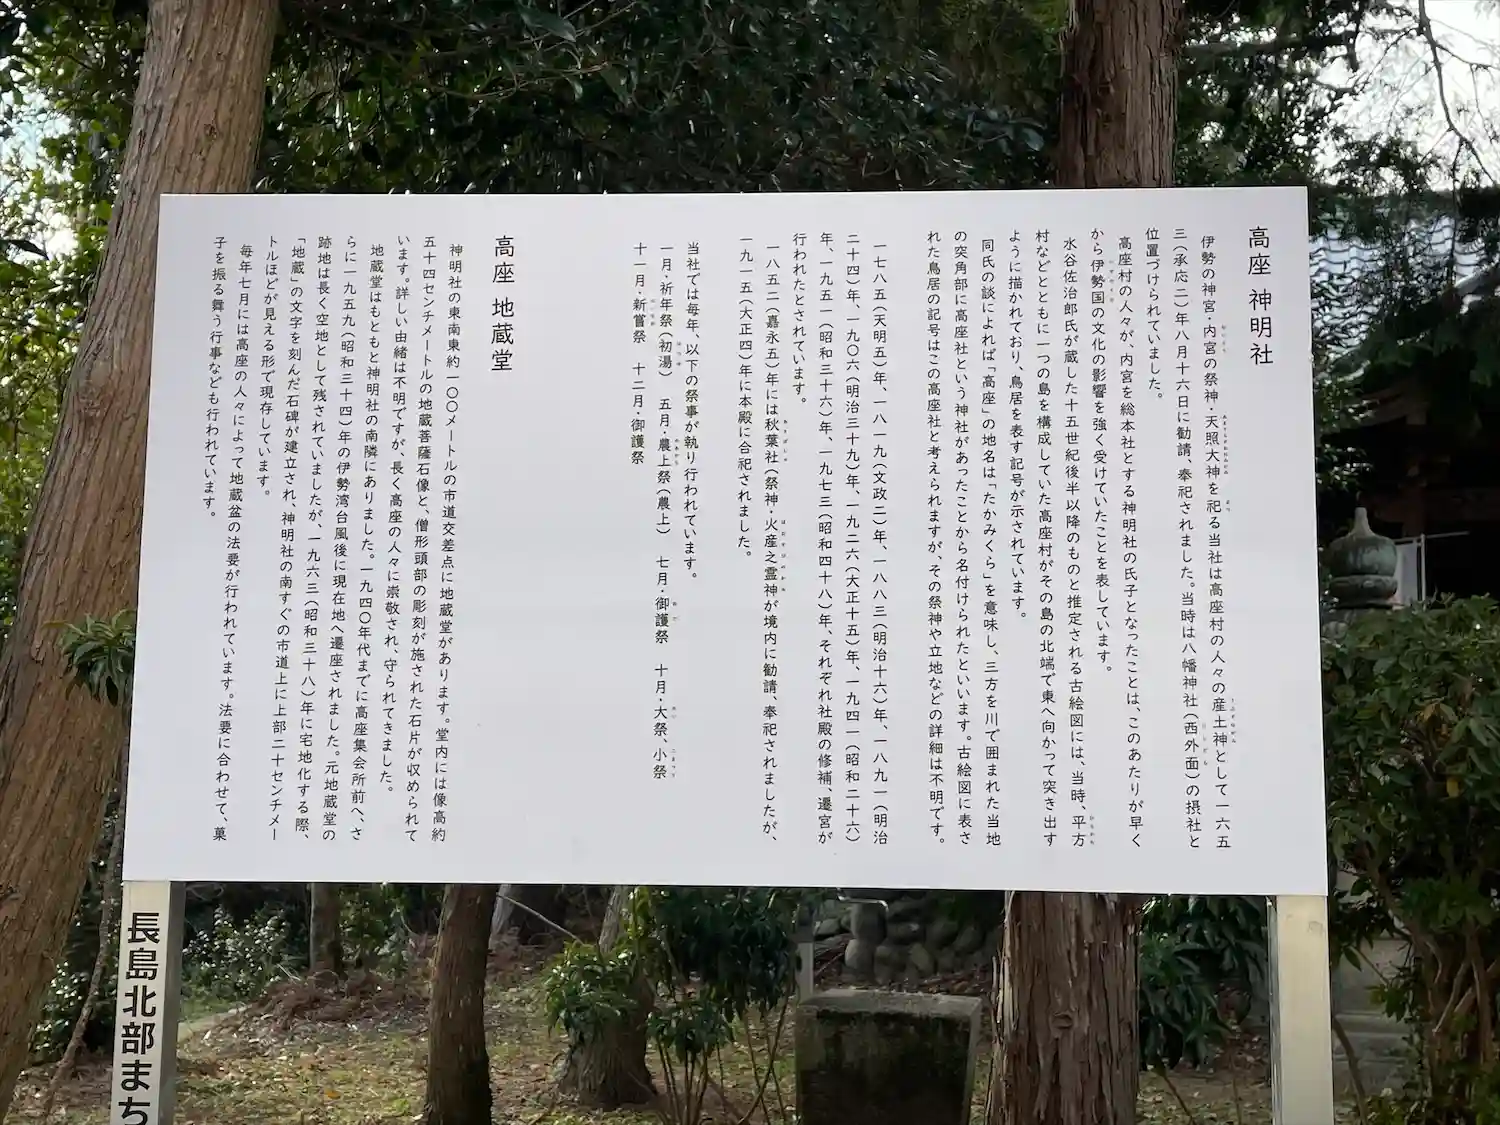 高座 神明社
伊勢の神宮・内宮の祭神・天照大神を祀る当社は高座村の人々の産土神として一六五
三（承応二）年八月十六日に勧請、奉祀されました。当時は八幡神社（西外面）の摂社と
位置づけられていました。
高座村の人々が、内宮を総本社とする神明社の氏子となったことは、このあたりが早く
から伊勢国の文化の影響を強く受けていたことを表しています。
水谷佐治郎氏が蔵した十五世紀後半以降のものと推定される古絵図には、当時、平方
村などとともに一つの島を構成していた高座村がその島の北端で東へ向かって突き出す
ように描かれており、鳥居を表す記号が示されています。
同氏の談によれば「高座」の地名は「たかみくら」を意味し、三方を川で囲まれた当地
の突角部に高座社という神社があったことから名付けられたといいます。古絵図に表さ
れた鳥居の記号はこの高座社と考えられますが、その祭神や立地などの詳細は不明です。
一七八五（天明五）年、一八一九（文政二）年、一八八三（明治十六）年、一八九一（明治
二十四）年、一九〇六（明治三十九）年、一九二六（大正十五）年、一九四一（昭和二十六）
年、一九五一（昭和三十六）年、一九七三（昭和四十八）年、それぞれ社殿の修補、遷宮が
行われたとされています。
一八五二（嘉永五）年には秋葉社（祭神・火産之霊神が境内に勧請、奉祀されましたが、
一九一五（大正四）年に本殿に合祀されました。
当社では毎年、以下の祭事が執り行われています。
一月・祈年祭（初湯） 五月・農上祭（農上） 七月・御護祭 十月・大祭、小祭
十一月・新嘗祭 十二月・御護祭
高座 地蔵堂
神明社の東南東約一〇〇メートルの市道交差点に地蔵堂があります。堂内には像高約
五十四センチメートルの地蔵菩薩石像と、僧形頭部の彫刻が施された石片が収められて
います。詳しい由緒は不明ですが、長く高座の人々に崇敬され、守られてきました。
地蔵堂はもともと神明社の南隣にありました。一九四〇年代までに高座集会所前へ、さ
らに一九五九（昭和三十四）年の伊勢湾台風後に現在地へ遷座されました。元地蔵堂の
跡地は長く空地として残されていましたが、一九六三（昭和三十八）年に宅地化する際、
「地蔵」の文字を刻んだ石碑が建立され、神明社の南すぐの市道上に上部二十センチメー
トルほどが見える形で現存しています。
毎年七月には高座の人々によって地蔵盆の法要が行われています。法要に合わせて、菓
子を振る舞う行事なども行われています。
長島北部まち